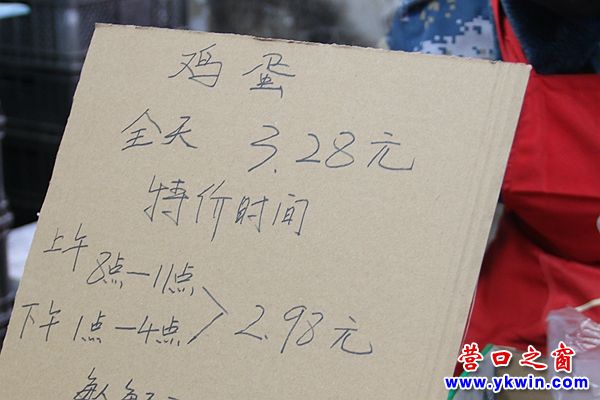 鸡蛋
全天 3.28元
特价时间
上午8点-11点
下午1点-4点 > 2.98元
营口之窗
www.ykwin.com